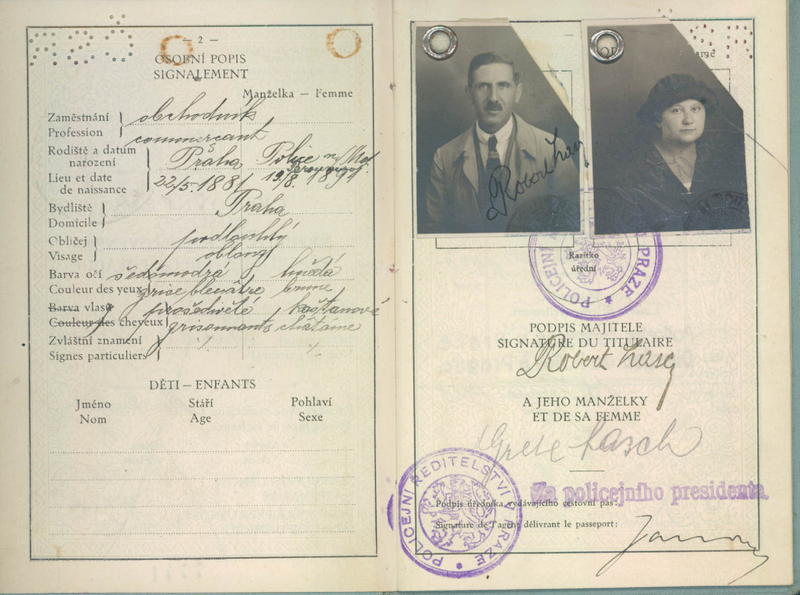 — 2 —
OSOBNÍ POPIS
SIGNALEMENT
Manželka – Femme
Zaměstnání
Profession
obchodník
commerçant
Rodiště a datum
narození
Lieu et date
de naissance
Praha, Police n/Met
22/5. 1881 19/8.
Bydliště
Domicile
Praha
Obličej
Visage
podlouhlý
oblong
Barva očí šedomodrá hnědá
Couleur des yeux grise bleuâtre brune
Barva vlasů prošedivělé kaštanové
Couleur des cheveux grisonnants châtains
Zvláštní znamení
Signes particuliers
DĚTI – ENFANTS
Jméno Stáří Pohlaví
Nom Age Sexe
Robert Lasch
Razítko
úřední
POLICEJNÍ PRAZE
PODPIS MAJITELE
SIGNATURE DU TITULAIRE
Robert Lasch
A JEHO MANŽELKY
ET DE SA FEMME
Grete Lasch
Za policejního presidenta
Podpis úředníka vydávajícího cestovní pas:
Signature de l'agent délivrant le passeport:
POLICEJNÍ ŘEDITELSTVÍ V PRAZE